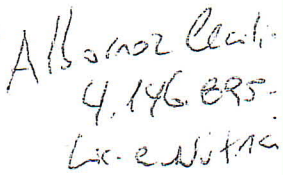 Albornoz Cecili.
4.146.895.
Lic. e Nutrici